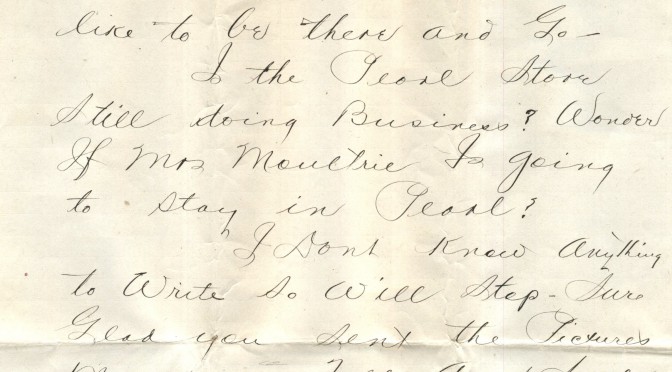 like to be there and Go -
Is the Pearl Store
Still doing Business? Wonder
If Mrs Moultrie Is going
to stay in Pearl?
I Dont Know Anything
to Write So Will Stop - Sure
Glad you sent the Pictures